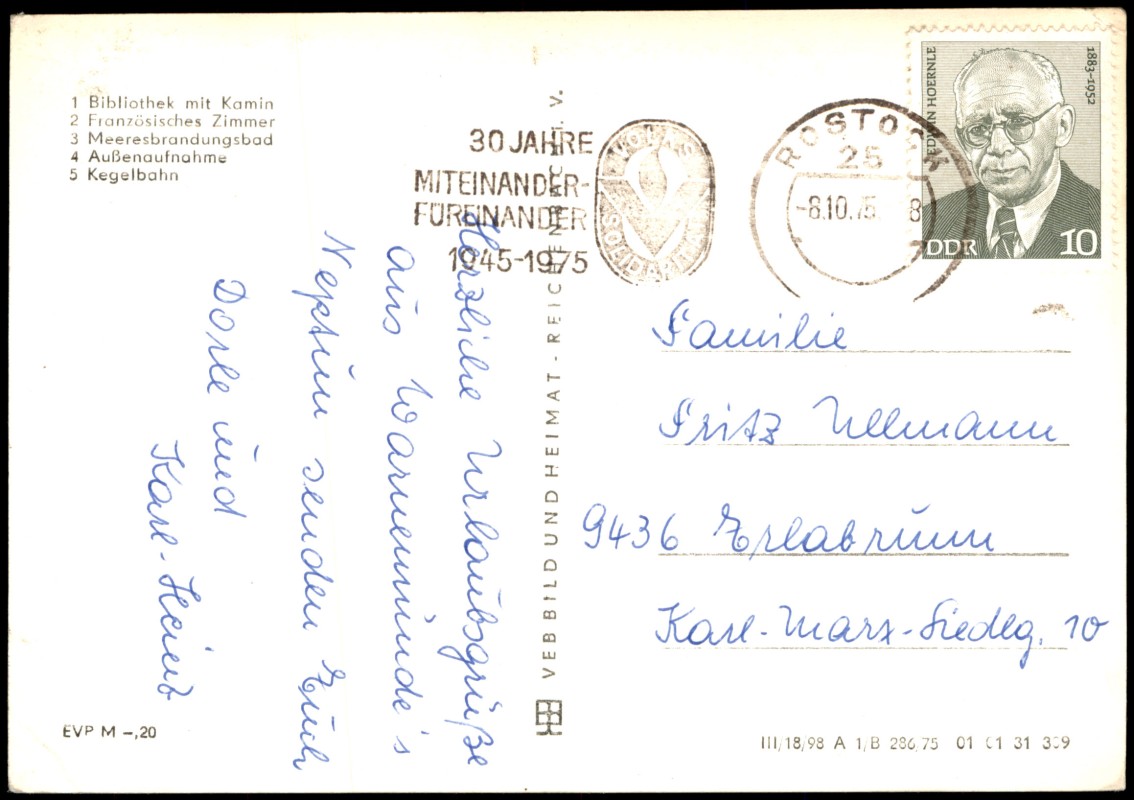 1 Bibliothek mit Kamin
2 Französisches Zimmer
3 Meeresbrandungsbad
4 Außenaufnahme
5 Kegelbahn
30 JAHRE
MITEINANDER-
FÜREINANDER
1945-1975
VOLKS
SOLIDARITÄT
ROSTOCK
25
-8.10.75 8
EDWIN HOERNLE
1883-1952
DDR
10
Herzliche Urlaubsgrüße
aus Warnemünde's
Neptun senden Euch
Dorle und
Karl-Heinz
VEB BILD UND HEIMAT - REICHENBACH I. V.
Familie
Fritz Ullmann
9436 Erlabrunn
Karl-Marx-Siedlg. 10
EVP M -,20
III/18/98 A 1/B 286/75 01 01 31 309